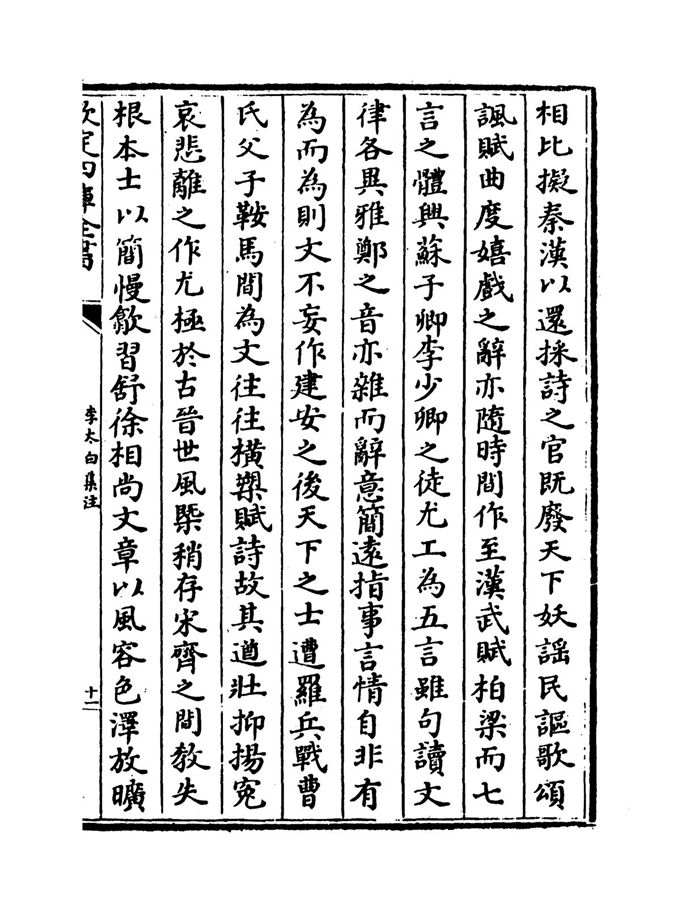 相比擬秦漢以還採詩之官既廢天下妖謡民謳歌頌
諷賦曲度嬉戲之辭亦隨時間作至漢武賦柏梁而七
言之體興蘇子卿李少卿之徒尤工為五言雖句讀文
律各異雅鄭之音亦雜而辭意簡遠指事言情自非有
為而為則文不妄作建安之後天下之士遭羅兵戰曹
氏父子鞍馬間為文往往横槊賦詩故其遒壯抑揚寃
哀悲離之作尤極於古晉世風槩稍存宋齊之間教失
根本士以簡慢歙習舒徐相尚文章以風容色澤放曠
欽定四庫全書
李太白集注
十二